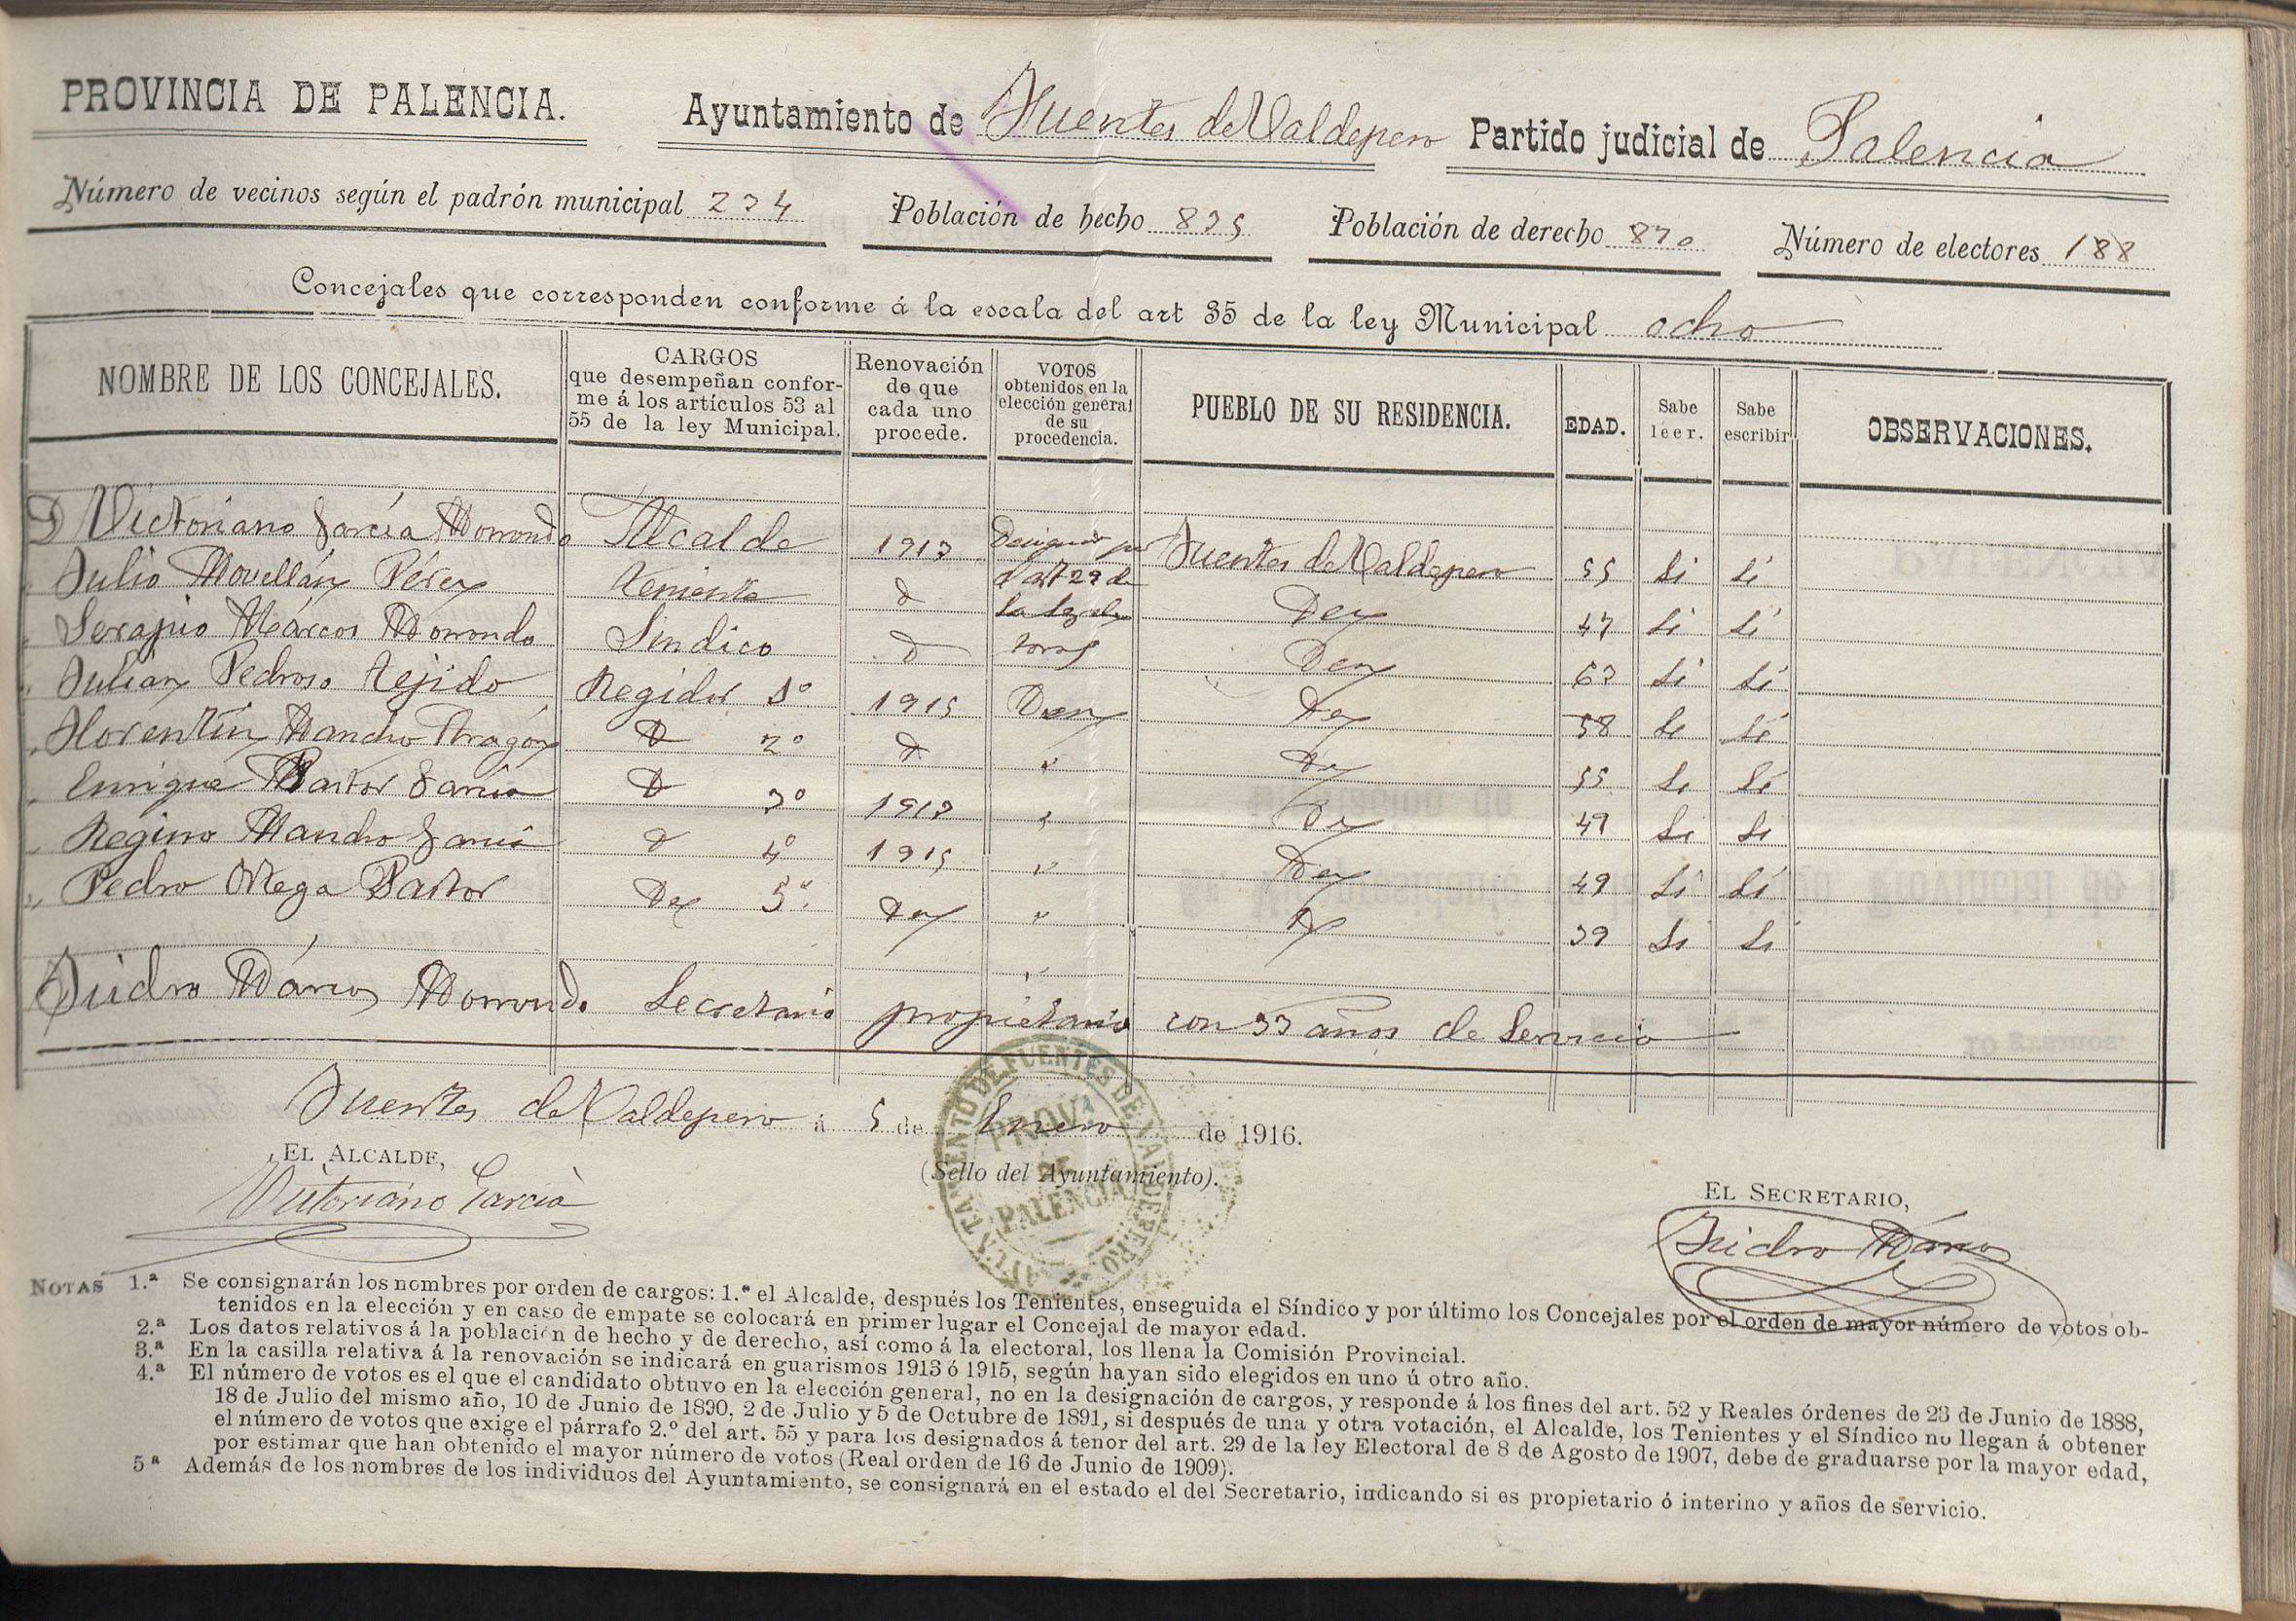 PROVINCIA DE PALENCIA. Ayuntamiento de Fuentes de Valdepero Partido judicial de Palencia
Número de vecinos según el padrón municipal 234 Población de hecho 835 Población de derecho 870 Número de electores 188
Concejales que corresponden conforme á la escala del art 35 de la ley Municipal ocho
NOMBRE DE LOS CONCEJALES.
CARGOS
que desempeñan confor-
me á los artículos 53 al
55 de la ley Municipal.
Renovación
de que
cada uno
procede.
VOTOS
obtenidos en la
elección general
de su
procedencia.
PUEBLO DE SU RESIDENCIA.
EDAD.
Sabe
leer.
Sabe
escribir
OBSERVACIONES.
D Victoriano García Monrondo Alcalde 1913 Fuentes de Valdepero 55 Si Si
" Julio Movellán Pérez Teniente d art 29 de Dey 47 Si Si
" Serapio Márcos Monrondo Sindico d Dey 63 Si Si
" Julian Pedroso Tejido Regidor 1º 1915 Dey 58 Si Si
" Florentín Mancho Aragón D 2º d " Dey 55 Si Si
" Enrique Pastor García D 3º 1913 " Dey 49 Si Si
" Regino Mancho García d 4º 1915 " Dey 49 Si Si
" Pedro Ortega Pastor 5º " 39 Si Si
Isidro Márcos Monrondo Secretario propietario con 33 años de Servicio
Fuentes de Valdepero á 5 de Enero de 1916.
EL ALCALDE,
(Sello del Ayuntamiento).
AYUNTAMIENTO DE FUENTES DE VALDEPERO
PROV.ª
DE
PALENCIA
Victoriano García
EL SECRETARIO,
Isidro Márcos
NOTAS 1.ª Se consignarán los nombres por orden de cargos: 1.º el Alcalde, después los Tenientes, enseguida el Síndico y por último los Concejales por el orden de mayor número de votos ob-
tenidos en la elección y en caso de empate se colocará en primer lugar el Concejal de mayor edad.
2.ª Los datos relativos á la población de hecho y de derecho, así como á la electoral, los llena la Comisión Provincial.
3.ª En la casilla relativa á la renovación se indicará en guarismos 1913 ó 1915, según hayan sido elegidos en uno ú otro año.
4.ª El número de votos es el que el candidato obtuvo en la elección general, no en la designación de cargos, y responde á los fines del art. 52 y Reales órdenes de 23 de Junio de 1888,
18 de Julio del mismo año, 10 de Junio de 1890, 2 de Julio y 5 de Octubre de 1891, si después de una y otra votación, el Alcalde, los Tenientes y el Síndico no llegan á obtener
el número de votos que exige el párrafo 2.º del art. 55 y para los designados á tenor del art. 29 de la ley Electoral de 8 de Agosto de 1907, debe de graduarse por la mayor edad,
por estimar que han obtenido el mayor número de votos (Real orden de 16 de Junio de 1909).
5ª Además de los nombres de los individuos del Ayuntamiento, se consignará en el estado el del Secretario, indicando si es propietario ó interino y años de servicio.